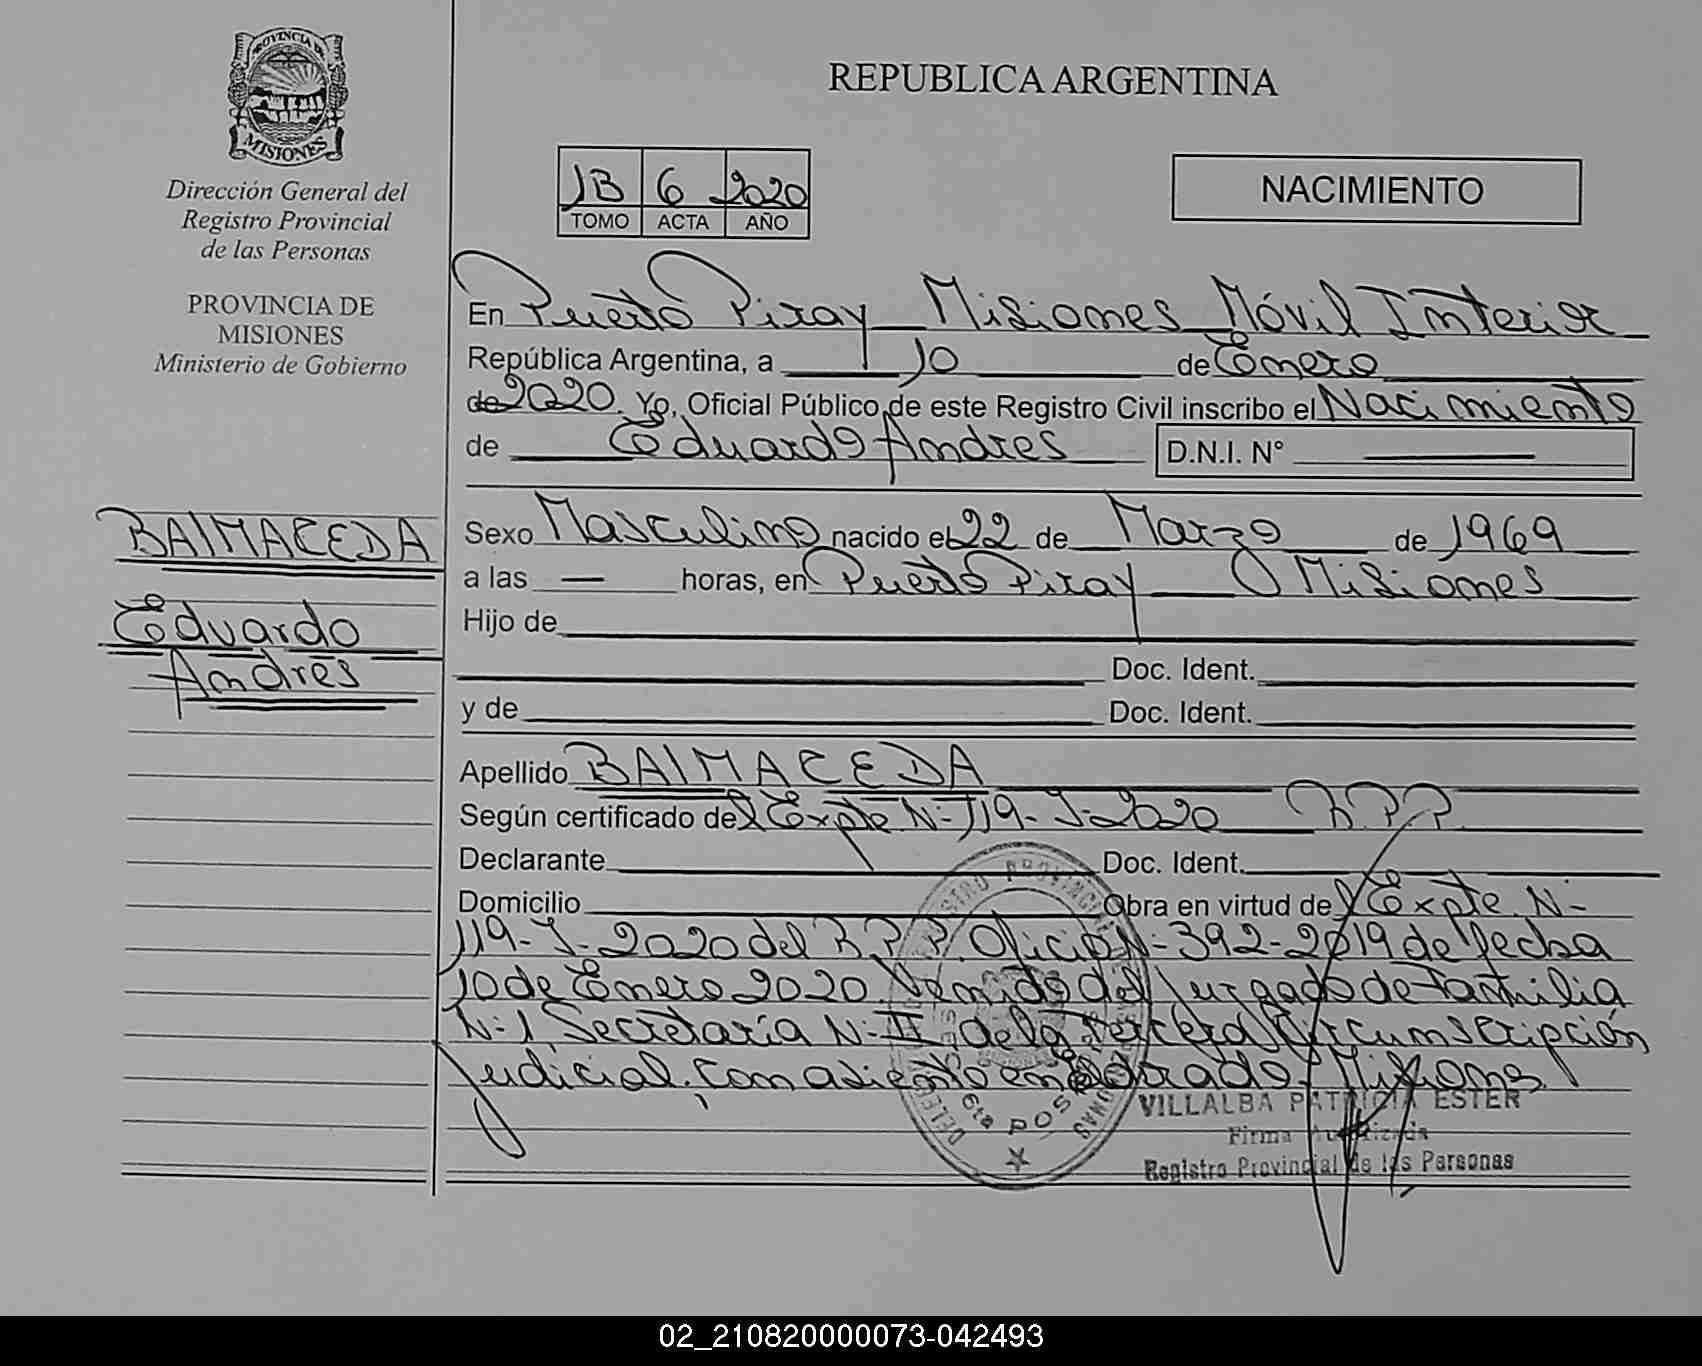 PROVINCIA DE
MISIONES
Dirección General del
Registro Provincial
de las Personas
PROVINCIA DE
MISIONES
Ministerio de Gobierno
BAlMACEDA
Eduardo
Andres
REPUBLICA ARGENTINA
1B 6 2020
TOMO ACTA AÑO
NACIMIENTO
En Puerto Piray Misiones Móvil Interior
República Argentina, a 10 de Enero
de 2020. Yo, Oficial Público de este Registro Civil inscribo el Nacimiento
de Eduardo Andres D.N.I. N°
Sexo Masculino nacido el 22 de Marzo de 1969
a las — horas, en Puerto Piray Misiones
Hijo de
Doc. Ident.
y de Doc. Ident.
Apellido BAlMACEDA
Según certificado del Expte N- 119-J-2020 R.P.P.
Declarante Doc. Ident.
Domicilio Obra en virtud del Expte. N-
119-J-2020 del R.P.P. Oficio N- 392-2019 de fecha
10 de Enero 2020. Venido del Juzgado de Familia
N-1, Secretaría N- II, de la Tercera Circumscripción
judicial, con asiento en Eldorado, Misiones.
VILLALBA PATRICIA ESTER
Firma Autorizada
Registro Provincial de las Personas
02_210820000073-042493